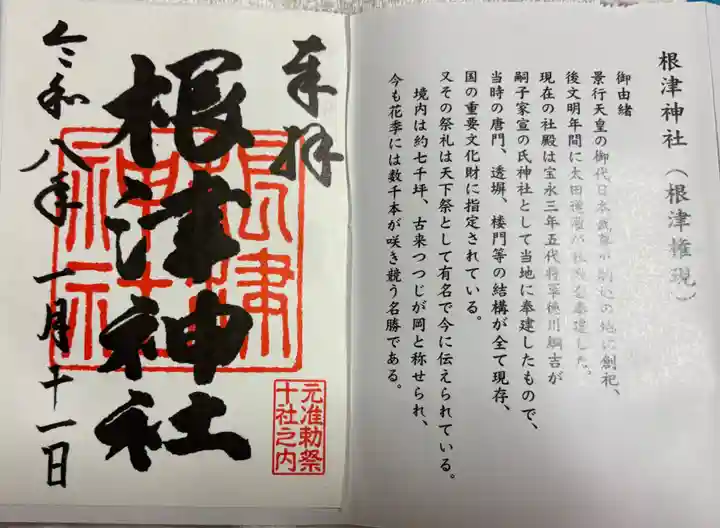 根津神社（根津権現）
御由緒
景行天皇の御代日本武尊の地に創祀、
後文明年間に太田道灌が社殿を奉建した。
現在の社殿は宝永三年五代将軍徳川綱吉が
嗣子家宣の氏神社として当地に奉建したもので、
当時の唐門、透塀、楼門等の結構が全て現存、
国の重要文化財に指定されている。
又その祭礼は天下祭として有名で今に伝えられている。
境内は約七千坪、古来つつじが岡と称せられ、
今も花季には数千本が咲き競う名勝である。
奉拝
元准勅祭
十社之内
根津神社
根津
神社
令和八年一月十一日